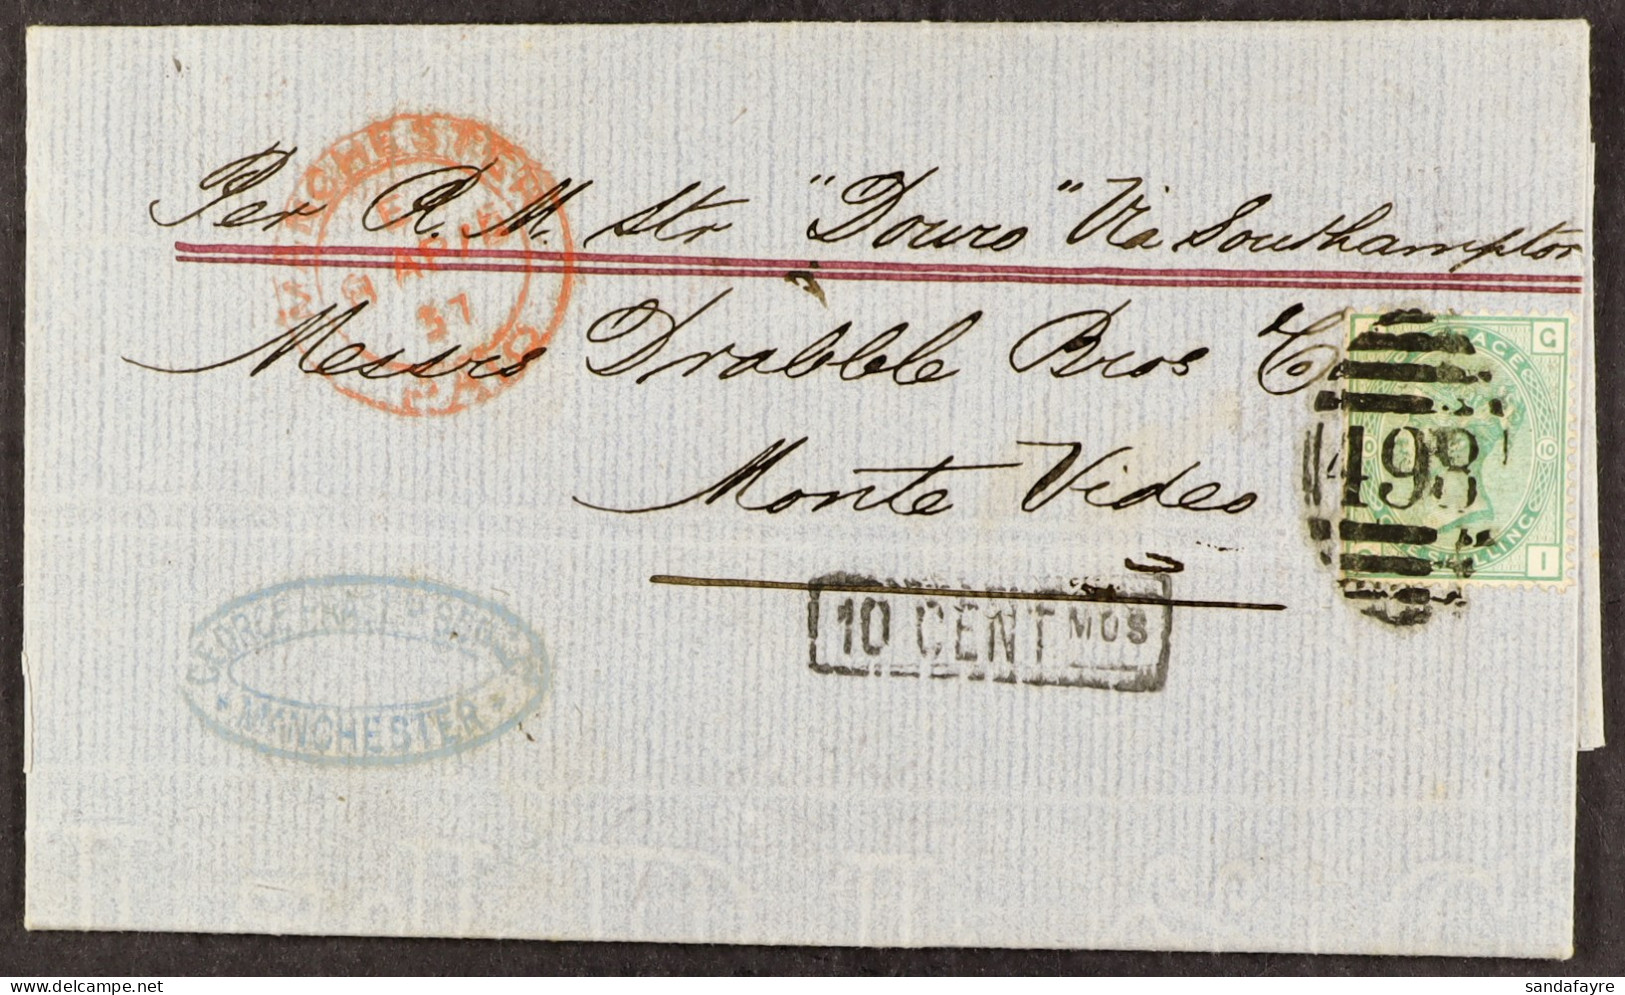 Per R. M. Str "Douro" Via Southampton
MANCHESTER
E
9 AP
PAID
Messrs Drabble Bros & Co
Monte Video
G
498
10
SHILLING
I
10 CENTMOS
GEORGE
MANCHESTER
sandafayre